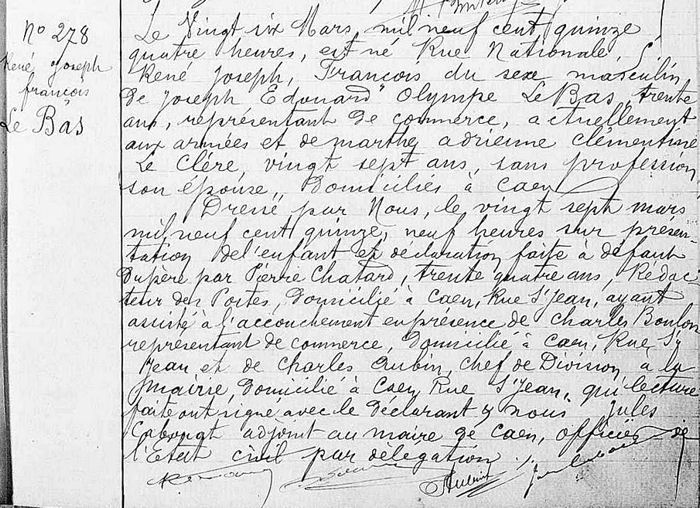 No 278
René Joseph
françois
Le Bas
Le Vingt six Mars mil neuf cent quinze
quatre heures, est né Rue Nationale,
René Joseph, François du sexe masculin,
de Joseph Edouard Olympe Le Bas, trente
ans, représentant de commerce, actuellement
aux armées et de marthe adrienne clémentine
Le Clère, vingt sept ans, sans profession,
son épouse, Domiciliés à Caen
Dressé par Nous, le vingt sept mars
mil neuf cent quinze, neuf heures sur présen
tation de l'enfant et déclaration faite à défaut
du père par Pierre Chatard, trente quatre ans, Rédac
teur des Postes, domicilié à Caen, Rue St Jean, ayant
assisté à l'accouchement en présence de Charles Boulon
représentant de commerce, domicilié à Caen, Rue St
Jean et de Charles Aubin, chef de Division à la
Mairie, domicilié à Caen Rue St Jean, qui lecture
faite ont signé avec le déclarant & nous Jules
adjoint au maire de Caen, officier de
l'Etat civil par délégation
Aubin